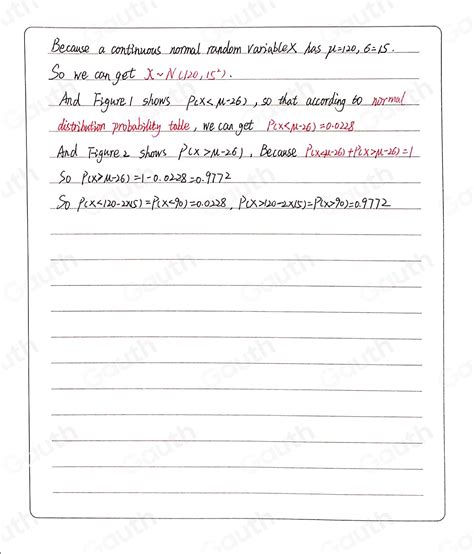 Because a continuous normal random variable X has μ=120, 6=15.
So we can get X~N(120, 15²).
And Figure 1 shows P(X<μ-26), so that according to normal
distribution probability table, we can get P(X≤μ-26)=0.0228
And Figure 2 shows P(X>μ-26), Because P(X<μ-26)+P(X>μ-26)=1
So P(X>μ-26)=1-0.0228=0.9772
So P(X<120-2X15)=P(X<90)=0.0228, P(X>120-2X15)=P(X>90)=0.9772
Gauth